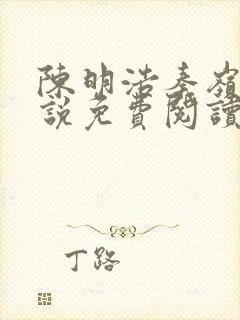 陳明浩秦嶺
說免費閱讀
丁路